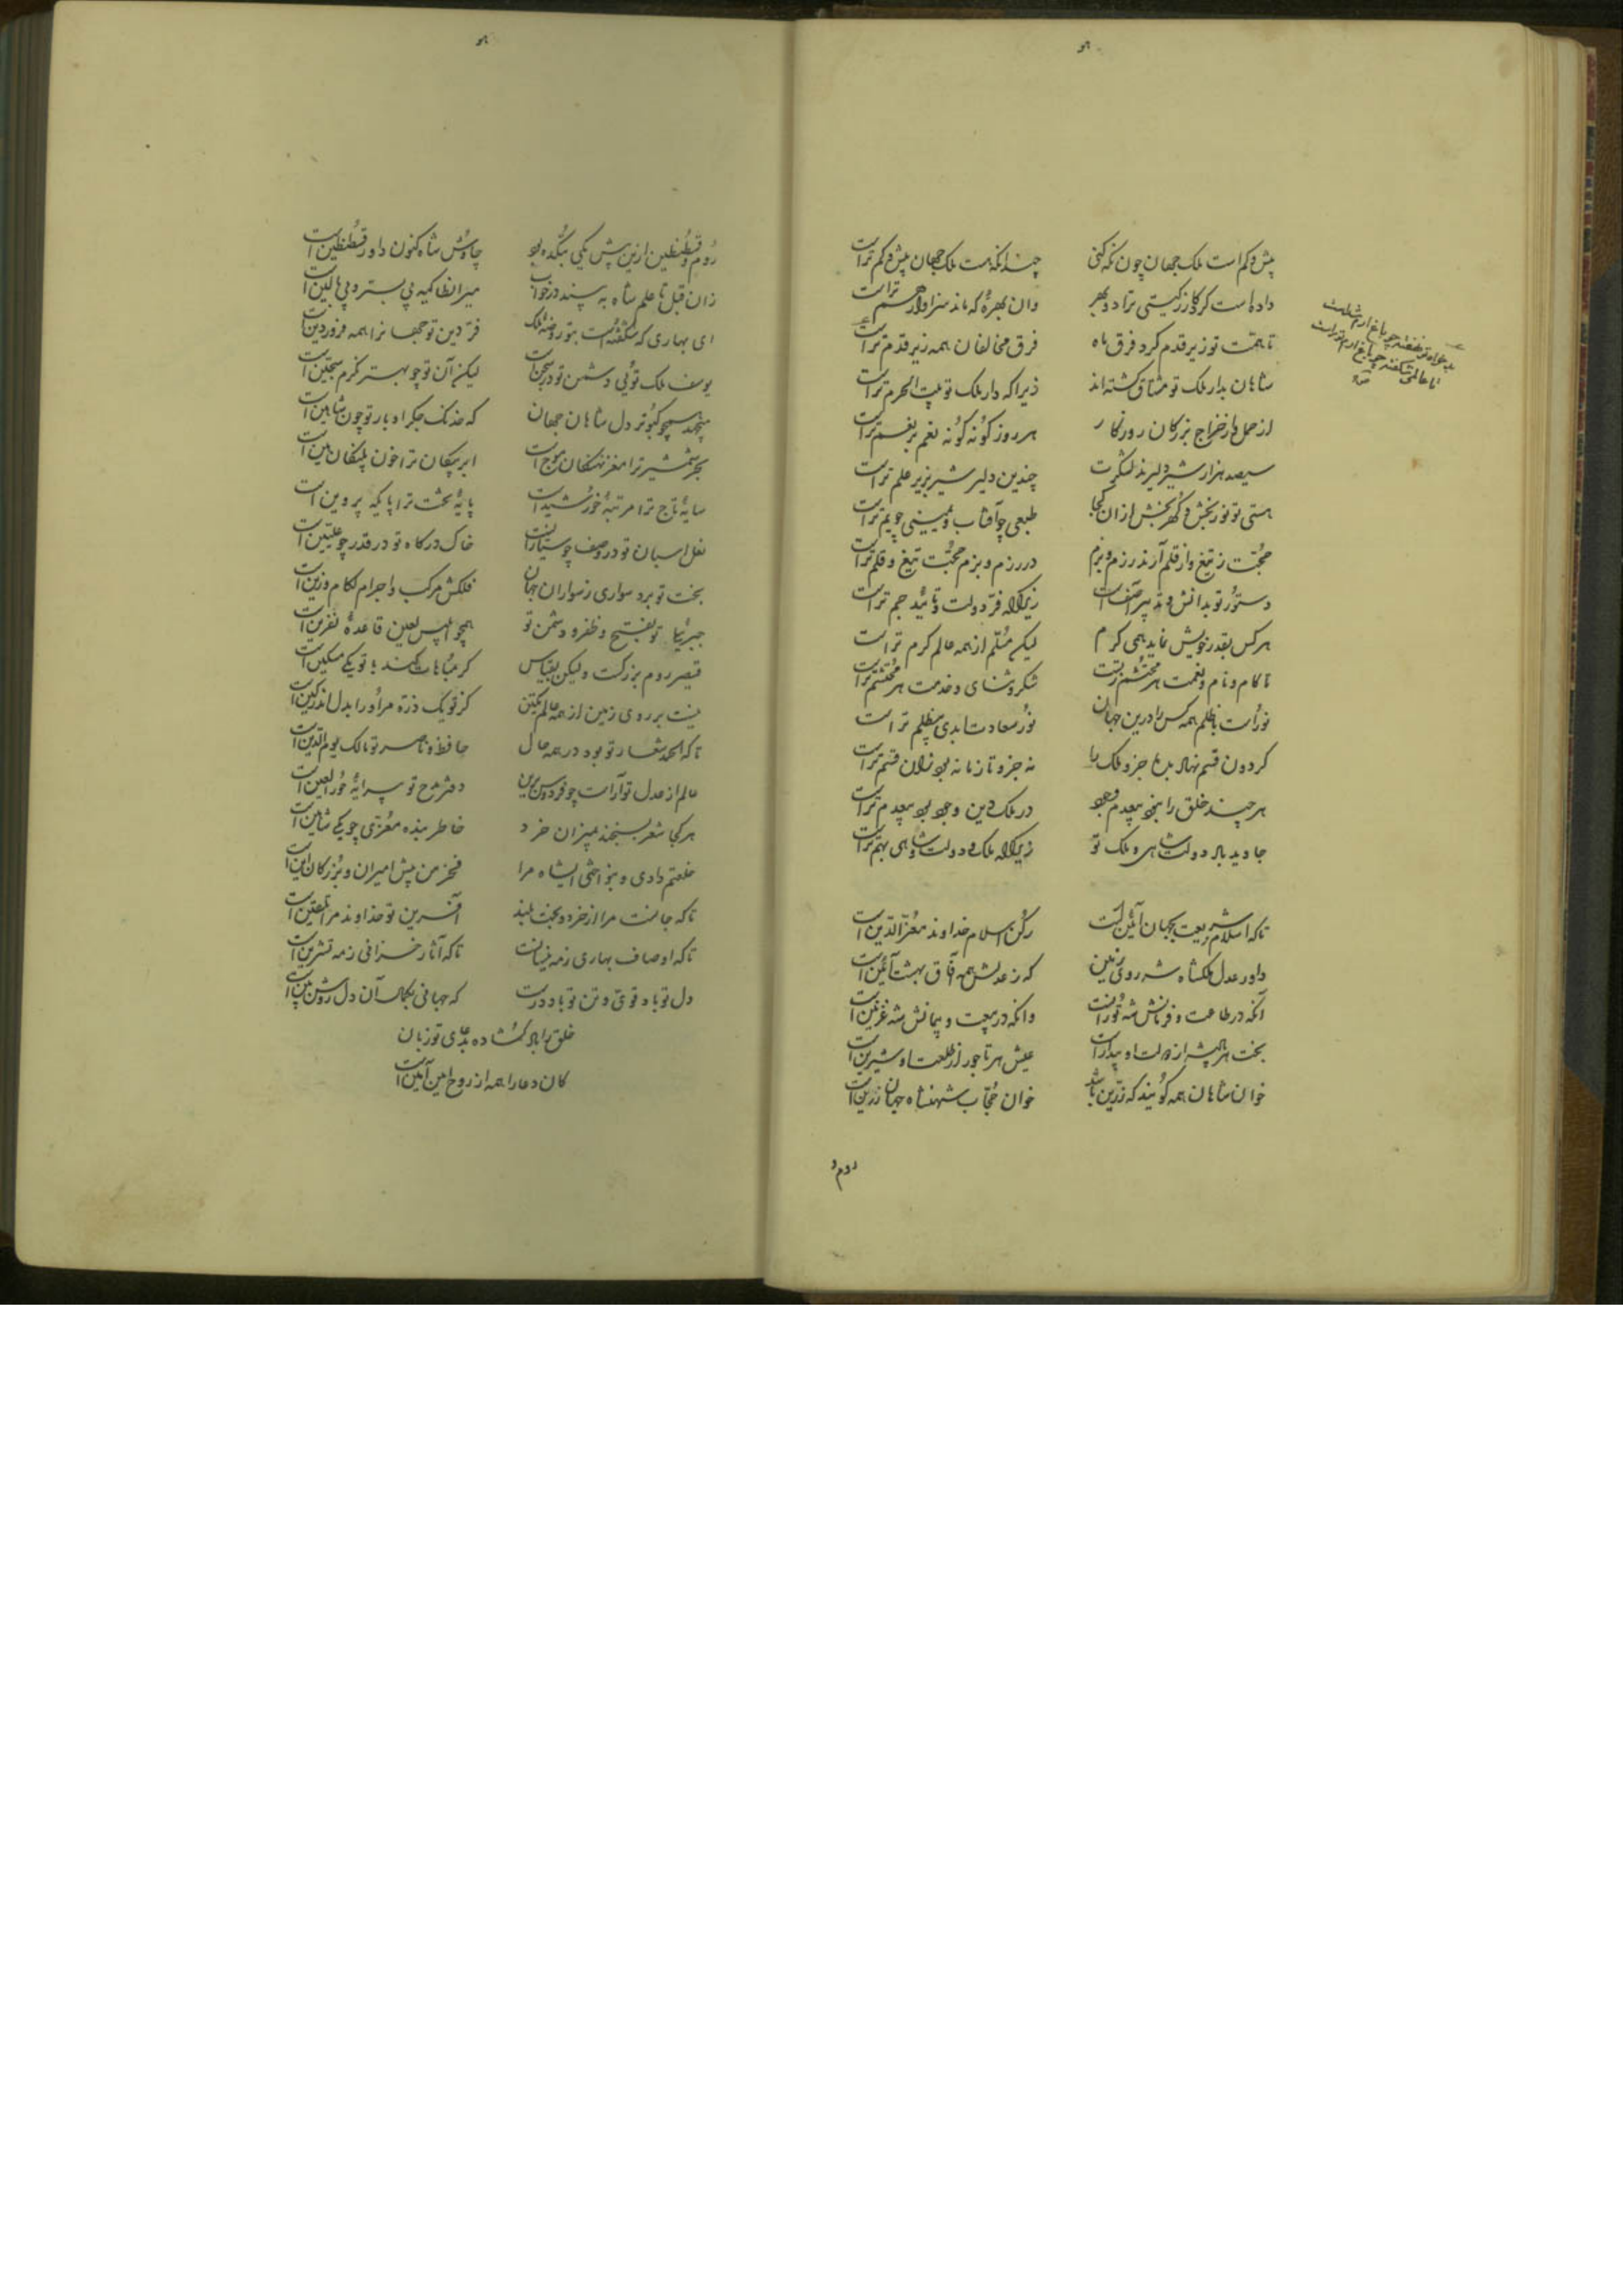 بیش و کم است ملک جهان چون نکه کنی چندانکه هست ملک جهان بیش و کم تراست
داده است کردکار ز کیتی ترا دو بهر وان بهره که ماند سزاوار هم تراست
تا همت تو زیر قدم کرد فرق ماه فرق مخالفان همه زیر قدم تراست
شاهان بدار ملک تو مشتاق کشته اند زیرا که دار ملک تو بیت الحرم تراست
از حمل و از خراج بزرکان روزکار هر روز کونه کونه نعم بر نعم تراست
سیصد هزار شیر دلیرند لشکرت چندین دلیر شیر بزیر علم تراست
هستی تو نور بخش و کهر بخش از ان کجا طبعی چو آفتاب و یمینی چو یم تراست
حجت ز تیغ و از قلم آرند رزم و بزم در رزم و بزم حجت تیغ و قلم تراست
دستور تو بدانش و تدبیر آصف است زیرا که فر دولت و تائید جم تراست
هر کس بقدر خویش نماید همی کرم لیکن مسلم از همه عالم کرم تراست
تا کام و نام و نعمت هر محتشم ز تست شکر و ثنای و خدمت هر محتشم تراست
نور است با ظلم همه کس را درین جهان نور سعادت ابدی بی ظلم تراست
کردون قسم نهاد
هر چند خلق را در ملک و دین
جاوید باد دولت شاهی و ملک تو زیرا که ملک و دولت و شاهی بهم تراست
تا که اسلام و شریعت بجهان آئین است رکن اسلام خداوند معز الدین است
داور عدل ملکشاه شه روی زمین که ز عدلش همه آفاق بهشت آئین است
آنکه در طاعت و فرمانش شه توران است وانکه در بیعت و پیمانش شه غزنین است
بخت هر شه از دولت او بیدار است عیش هر تاجور از طلعت او شیرین است
خوان شاهان همه کویند که زرین باشد خوان حجاب شهنشاه جهان زرین است
روم و
روم و قسطنطین ازین پیش یکی بتکده بود چاوش شاه کنون داور قسطنطین است
زان قبل تا علم شاه به بیند در خواب میر انطاکیه بی بستر و بی بالین است
ای بهاری که شکفته است بتو روضه ملک فر دین تو جهانرا همه فروردین است
یوسف ملک توئی و دشمن تو در سجن است لیکن آن تو چو بهتر نکرم سجین است
بنجد همچو کبوتر دل شاهان جهان که خدنک جکر او بار تو چون شاهین است
بحر شمشیر ترا مغز نهنکان موج است ابر پیکان ترا خون پلنکان هین است
سایه تاج ترا مرتبه خورشید است پایه تخت ترا پایکه پروین است
نعل اسبان تو در وصف چو سیارات است خاک درکاه تو در قدر چو علیین است
بخت تو برد سواری ز سواران جهان فلکش مرکب و اجرام لکام و زین است
تو بفتح و ظفر و دشمن تو همچو ابلیس لعین قاعده نفرین است
قیصر روم بزرکست ولیکن بقیاس کر مباهات کند با تو یکی مسکین است
نیست بر روی زمین از همه عالم یکتن کز تو یک ذره مر او را بدل اندر کین است
تا که الحمد شعار تو بود در همه حال حافظ و ناصر تو مالک یوم الدین است
عالم از عدل تو آراست چو فردوس برین دفتر مدح تو پیرایه حور العین است
هر کجا شعر بسنجند بمیزان خرد خاطر بنده معزی چو یکی شاهین است
خلعتم دادی و بنواختی ایشاه مرا فخر من پیش امیران و بزرکان این است
تا که جانست مرا از خرد و بخت بلند آفرین تو خداوند مرا تلقین است
تا که اوصاف بهاری ز مه نیسانست تا که آثار خزانی ز مه تشرین است
دل تو باد قوی و تن تو باد درست که جهانی بکمال آن دل روشن بین است
خلق را باد کشاده بدعای تو زبان
کان دعا را همه از روح امین آمین است